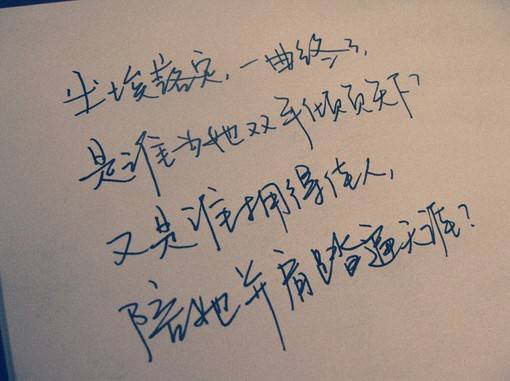 尘埃落定，一曲终了，
是谁为她双手倾负天下？
又是谁拥得佳人，
陪她并肩踏遍天涯？